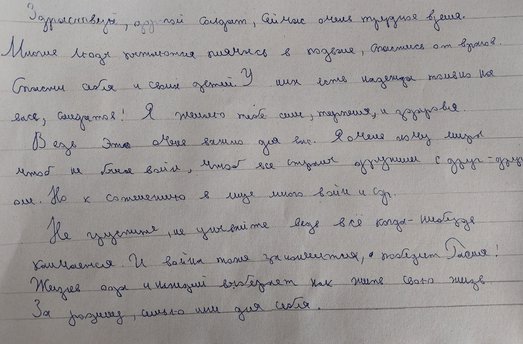 Здравствуй, дорогой солдат, сейчас очень трудное время.
Многие люди прятаться в подвале, спастись от врагов.
Спасти себя и своих детей. У них есть надежда только на
вас, солдатов! Я желаю тебе сил, терпения, и здоровья.
Ведь это очень важно для вас. Я очень хочу мира
чтоб не было войн, чтоб все страны дружили с друг-друг
ом. Но к сожелению в мире много войн и ср.
Не грустите, не унывайте ведь всё когда-нибудь
канчается. И война тоже закончится, победит
Жизнь одна и каждый выберает как жить свою жизнь.
За родину, семью или для себя.